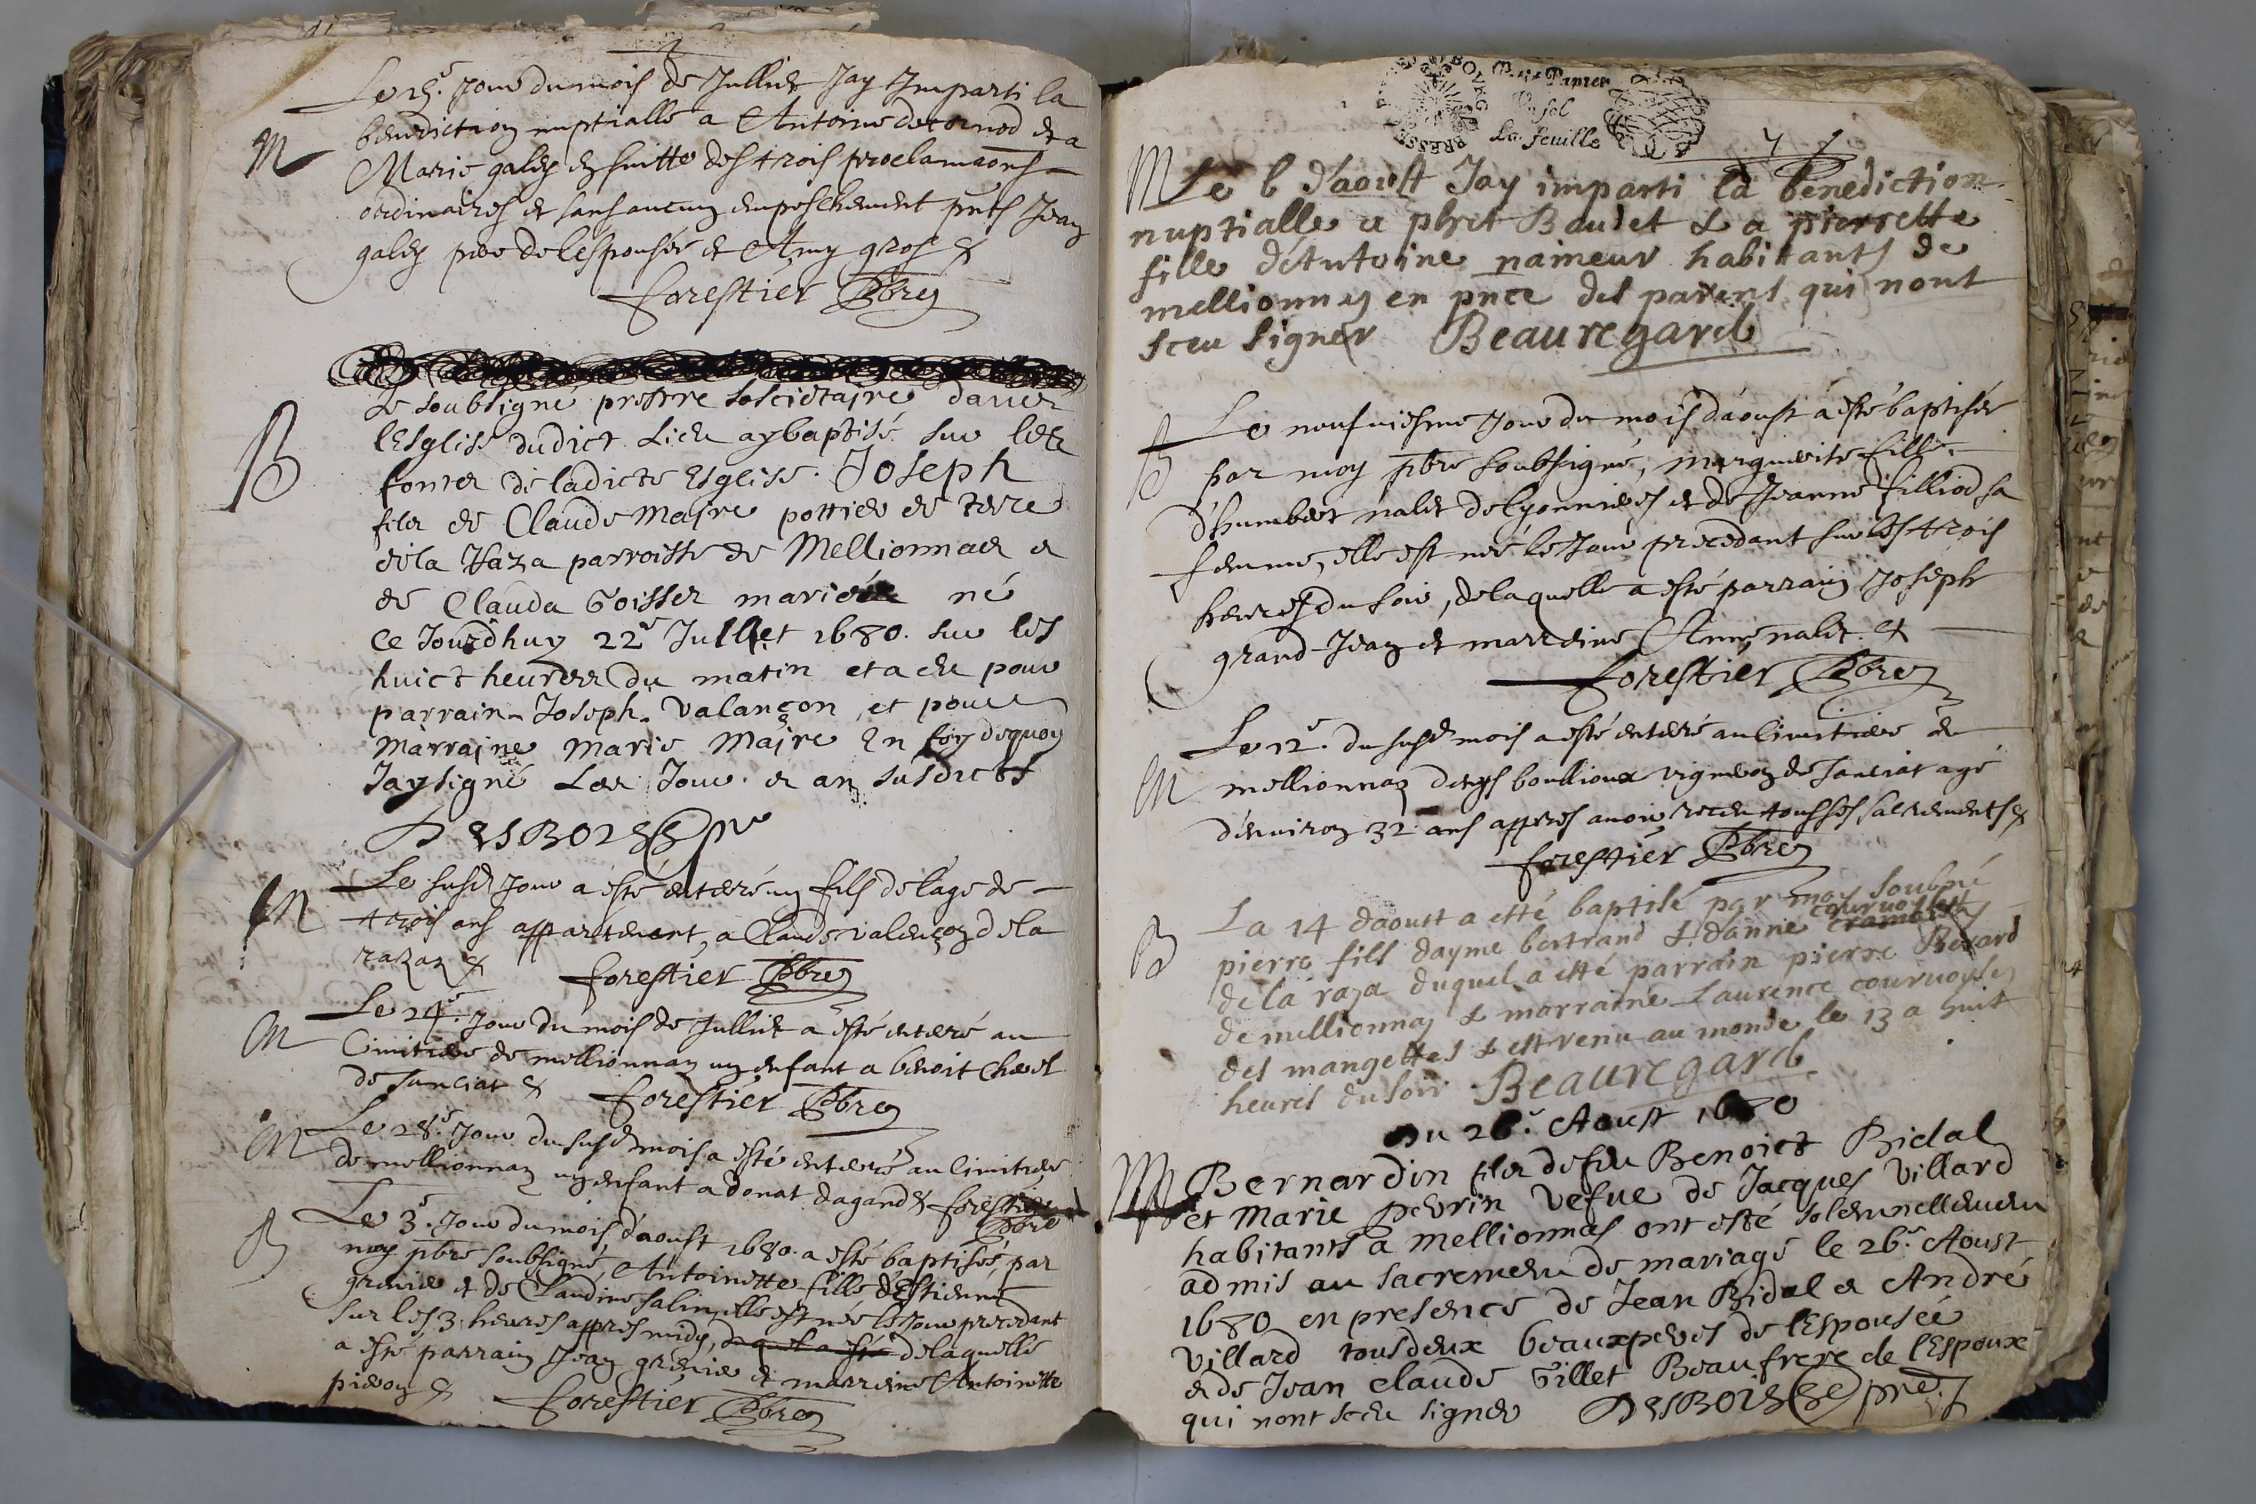 jour du mois de Julliet Jay Imparti la
M
benediction nuptialle a Antoine decornod et a
Marie galey en suitte des trois proclamaons
ordinaires et sans aucun empeschement pnts Jean
galey pere de lespousée et Amy gros &
forestier Pbre
Je soubsigné prestre sosciétaire
B
lEsglise dudict Lieu ay baptisé sur les
fonts de ladicte Esglise. Joseph
fils de Claude Maire pottier de terre
de la Raza parroisse de Mellionnas et
de Clauda Goisset mariés né
Ce Jourdhuy 22e Jullet 1680. sur les
huict heures du matin et a eu pour
parrain Joseph Valançon et pour
marraine Marie Maire En foy dequoy
Jay signé Les Jour et an susdicts
DESBOIS pre
M
Le susd Jour a esté enteré un fils de lage de
trois ans appartenant a Claude valençon de la
razaz &
forestier Pbre
M
Le 24e Jour du mois de Julliet a esté enteré au
Cimitiere de mellionnaz un enfant a benoit
de sanciat &
forestier Pbre
M
Le 28e Jour du susd mois a esté enteré au Cimitiere
de mellionnaz un enfant a donat dagand & forestier
Pbre
B
Le 3e Jour du mois daoust 1680. a esté baptisée par
moy pbre soubsigné, Antoinette fille dEstienne
grenie et de Claudine salin, elle est née le Jour precedant
sur les 3 heures appres midy, duquel a esté de laquelle
a esté parrain Jean grenie et marreine Antoinette
&
forestier Pbre
Petit Papier
Un sol
La feuille
BOVRG
BRESSE
M
Le 6 d'aoust Jay imparti la benediction
nuptialle a phret Baudet & a pierrette
fille d'Antoine nameur habitants de
mellionnas en pnce des parens qui nont
sceu signer Beauregard
B
Le neufviesme Jour du mois daoust a esté baptisée
par moy pbre soubsigné, marguerite fille
d'humbert nalet de lyonnieres et de Jeanne filliod sa
femme, elle est née le Jour precedant sur les trois
heures du soir, de laquelle a esté parrain Joseph
grand Jean et marreine Anne nalet. &
forestier Pbre
M
Le 12e. du susd mois a esté enteré au Cimitiere de
mellionnaz denys boullioux vigneron de sanciat agé
d'environ 32 ans appres avoir receu tous ses sacrements &
forestier Pbre
B
La 14 daoust a etté baptisé par moy soubné
couruoysier
pierre fils dayme bertrand & danne
de la raza duquel a etté parrain pierre Bevard
de mellionnas & marraine Laurence couruoysier
des mangettes & est venu au monde le 13 a huit
heures du soir Beauregard
Du 26e Aoust 1680
M
Bernardin fils de feu Benoict Bidal
et Marie pevrin vefue de Jacques Villard
habitants a mellionnas ont esté solemnellement
admis au sacrement de mariage le 26e Aoust
1680 en presence de Jean Bidal et André
Villard tousdeux beauxperes de lespousée
et de Jean Claude Gillet Beaufrere de lEspoux
qui nont sceu signer DESBOIS pre